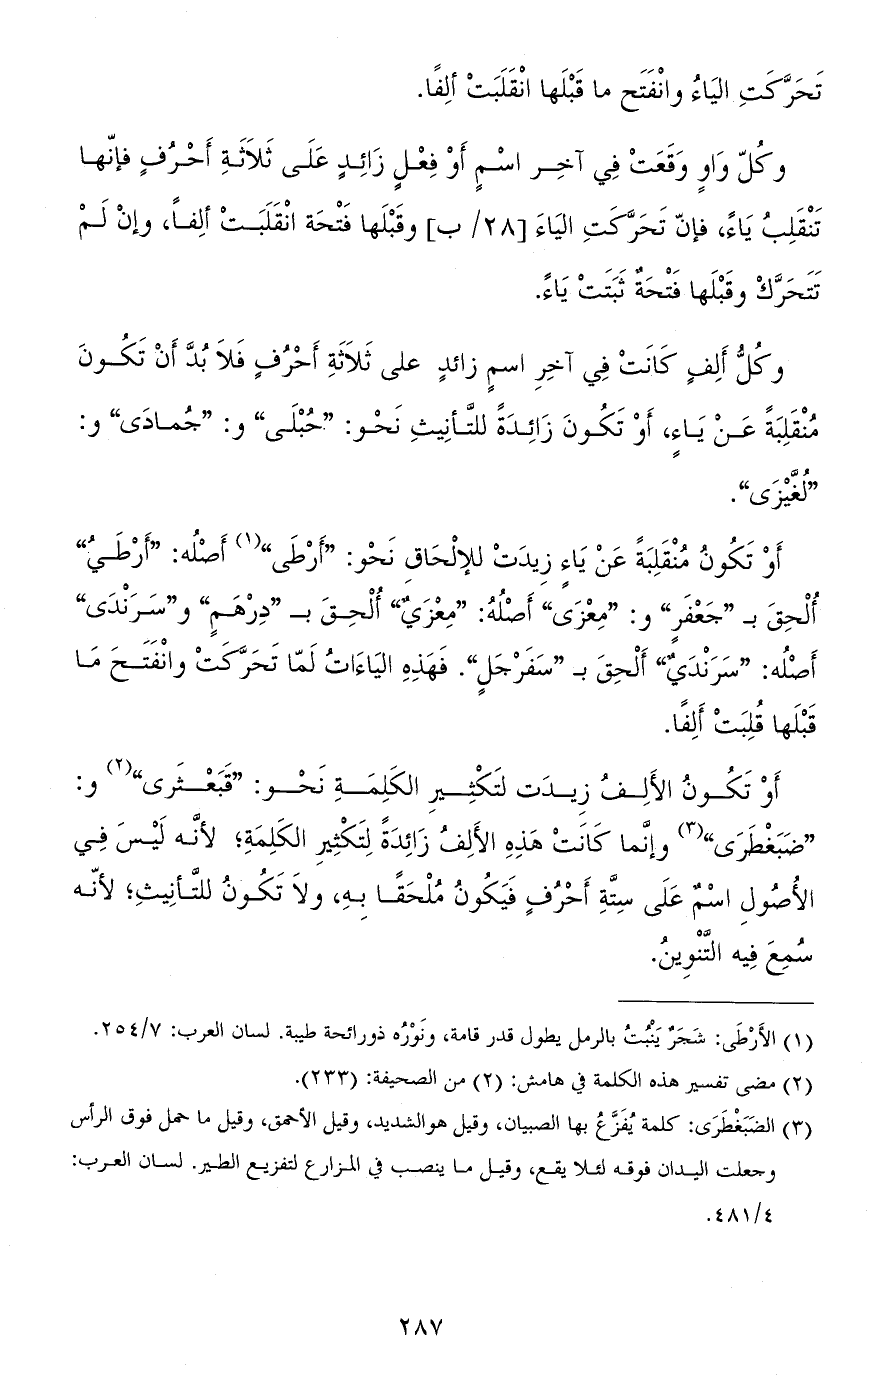 تَحَرَّكَتِ اليَاءُ وانْفَتَح ما قَبْلَها انْقَلَبَتْ ألِفًا.
وكُلّ وَاوٍ وَقَعَتْ فِي آخِـرِ اسْـمٍ أَوْ فِعْـلٍ زَائِـدٍ عَلَـى ثَلاَثَـةِ أَحْـرُفٍ فإنّهـا
تَنْقَلِبُ يَاءً، فإنّ تَحَرَّكَتِ اليَاءَ [٢٨/ ب] وقَبْلَها فَتْحَة انْقَلَبَـتْ ألِفـاً، وإنْ لَـمْ
تَتَحَرَّكْ وقَبْلَها فَتْحَةٌ ثَبَتَتْ يَاءً.
وكُلُّ أَلِفٍ كَانَتْ فِي آخِرِ اسمٍ زائدٍ على ثَلاَثَةِ أَحْرُفٍ فَلاَ بُدَّ أَنْ تَكُـونَ
مُنْقَلِبَةً عَـنْ يَـاءٍ، أَوْ تَكُـونَ زَائِـدَةً للتَّأنِيثِ نَحْـو: ”حُبْلَـى“ و: ”جُمـادَى“ و:
”لُغَّيْزَى“.
أَوْ تَكُونُ مُنْقَلِبَةً عَنْ يَاءٍ زِيدَتْ لِلإلْحَاقِ نَحْو: ”أَرْطَى“(١) أَصْلُه: ”أَرْطَـيُ“
أُلْحِقَ بـ ”جَعْفَرٍ“ و: ”مِعْزَى“ أَصْلُهُ: ”مِعْزَيٌ“ أُلْحِـقَ بـ ”دِرْهَـمٍ“ و”سَـرَنْدَى“
أَصْلُه: ”سَرَنْدَيٌ“ أُلْحِقَ بـ ”سَفَرْجَلٍ“. فَهَذِهِ اليَاءَاتُ لَمّا تَحَرَّكَتْ وانْفَتَـحَ مَـا
قَبْلَها قُلِبَتْ أَلِفًا.
أَوْ تَكُـونُ الأَلِـفُ زِيـدَت لَتَكْثِـيرِ الكَلِمَـةِ نَحْـو: ”قَبَعْـثَرى“(٢) و:
”ضَبَغْطَرَى“(٣) وإنَّما كَانَتْ هَذِهِ الأَلِفُ زَائِدَةً لِتَكْثِيرِ الكَلِمَةِ؛ لأنَّـه لَيْسَ فِـي
الأُصُولِ اسْمٌ عَلَى سِتَّةِ أَحْرُفٍ فَيَكُونُ مُلْحَقًـا بِـهِ، ولاَ تَكُـونُ للتَّأنِيـثِ؛ لأنّـه
سُمِعَ فِيه التَّنْوِينُ.
(١) الأَرْطَى: شَجَرٌ يَنْبُتُ بالرمل يطول قدر قامة، ونَوْرُه ذورائحة طيبة. لسان العرب: ٢٥٤/٧.
(٢) مضى تفسير هذه الكلمة في هامش: (٢) من الصحيفة: (٢٣٣).
(٣) الضَبَغْطَرَى: كلمة يُفَزَّعُ بها الصبيان، وقيل هوالشديد، وقيل الأحمق، وقيل ما حمل فوق الرأس
وجعلت اليدان فوقه لئلا يقع، وقيل ما ينصب في المزارع لتفزيع الطير. لسان العرب:
٤٨١/٤.
٢٨٧